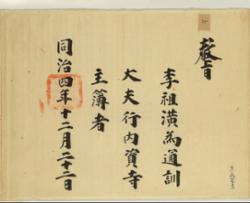 教旨
李祖潢為通訓
大夫行內資寺
主簿者
同治四年十二月二十二日